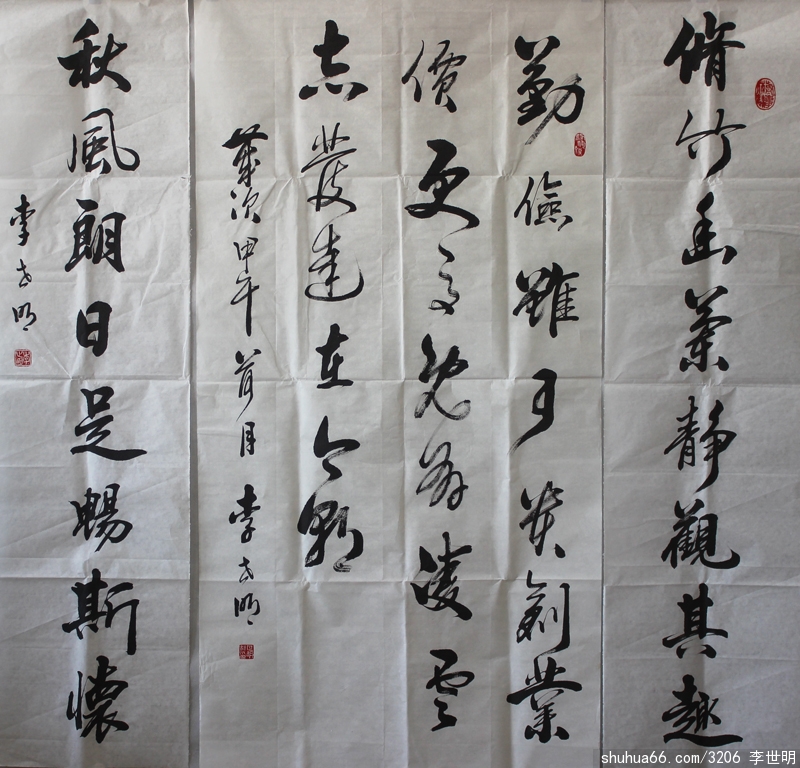 脩竹幽蘭靜觀其趣
勤儉雖可貴創業
價更高既有凌雲
志發達在今朝
歲次甲午荷月 李世明
秋風朗日足暢斯懷
李世明
shuhua66.com/3206 李世明